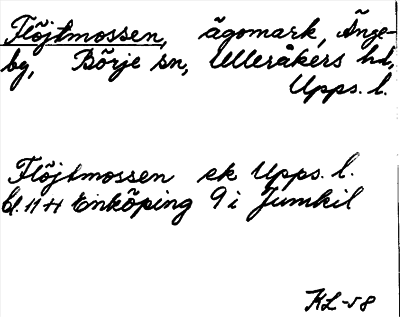 Flöjtmossen, ägomark, Änge-
by, Börje sn, Ulleråkers hd,
Upps. l.
Flöjtmossen ek Upps. l.
bl. 11 H Enköping 9 i Jumkil
KL -58